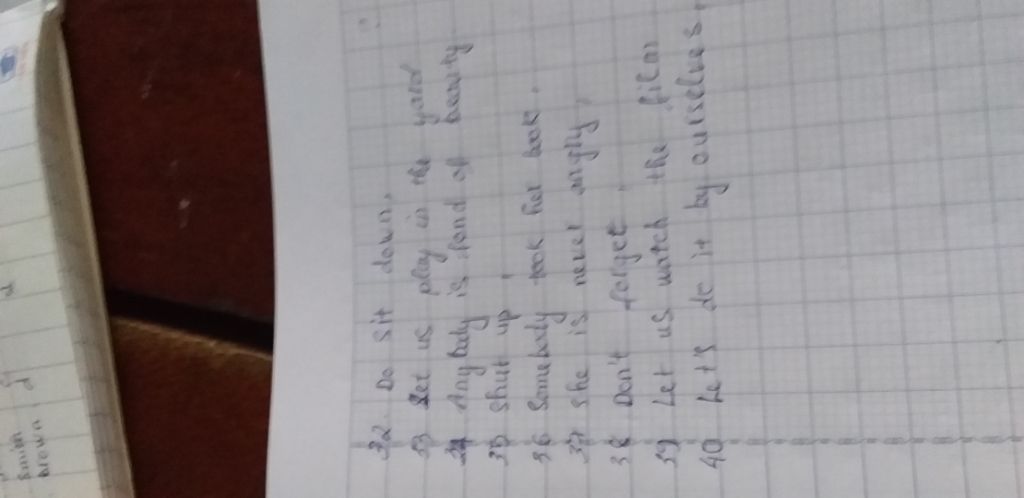 32 Do sit down.
33 Let us play in the yard
34 Anybody is fond of beauty
35 Shut up!
36 Somebody took her book.
37 She is never angry.
38 Don't forget.
39 Let us watch the film
40 Let's do it by ourselves.
brown